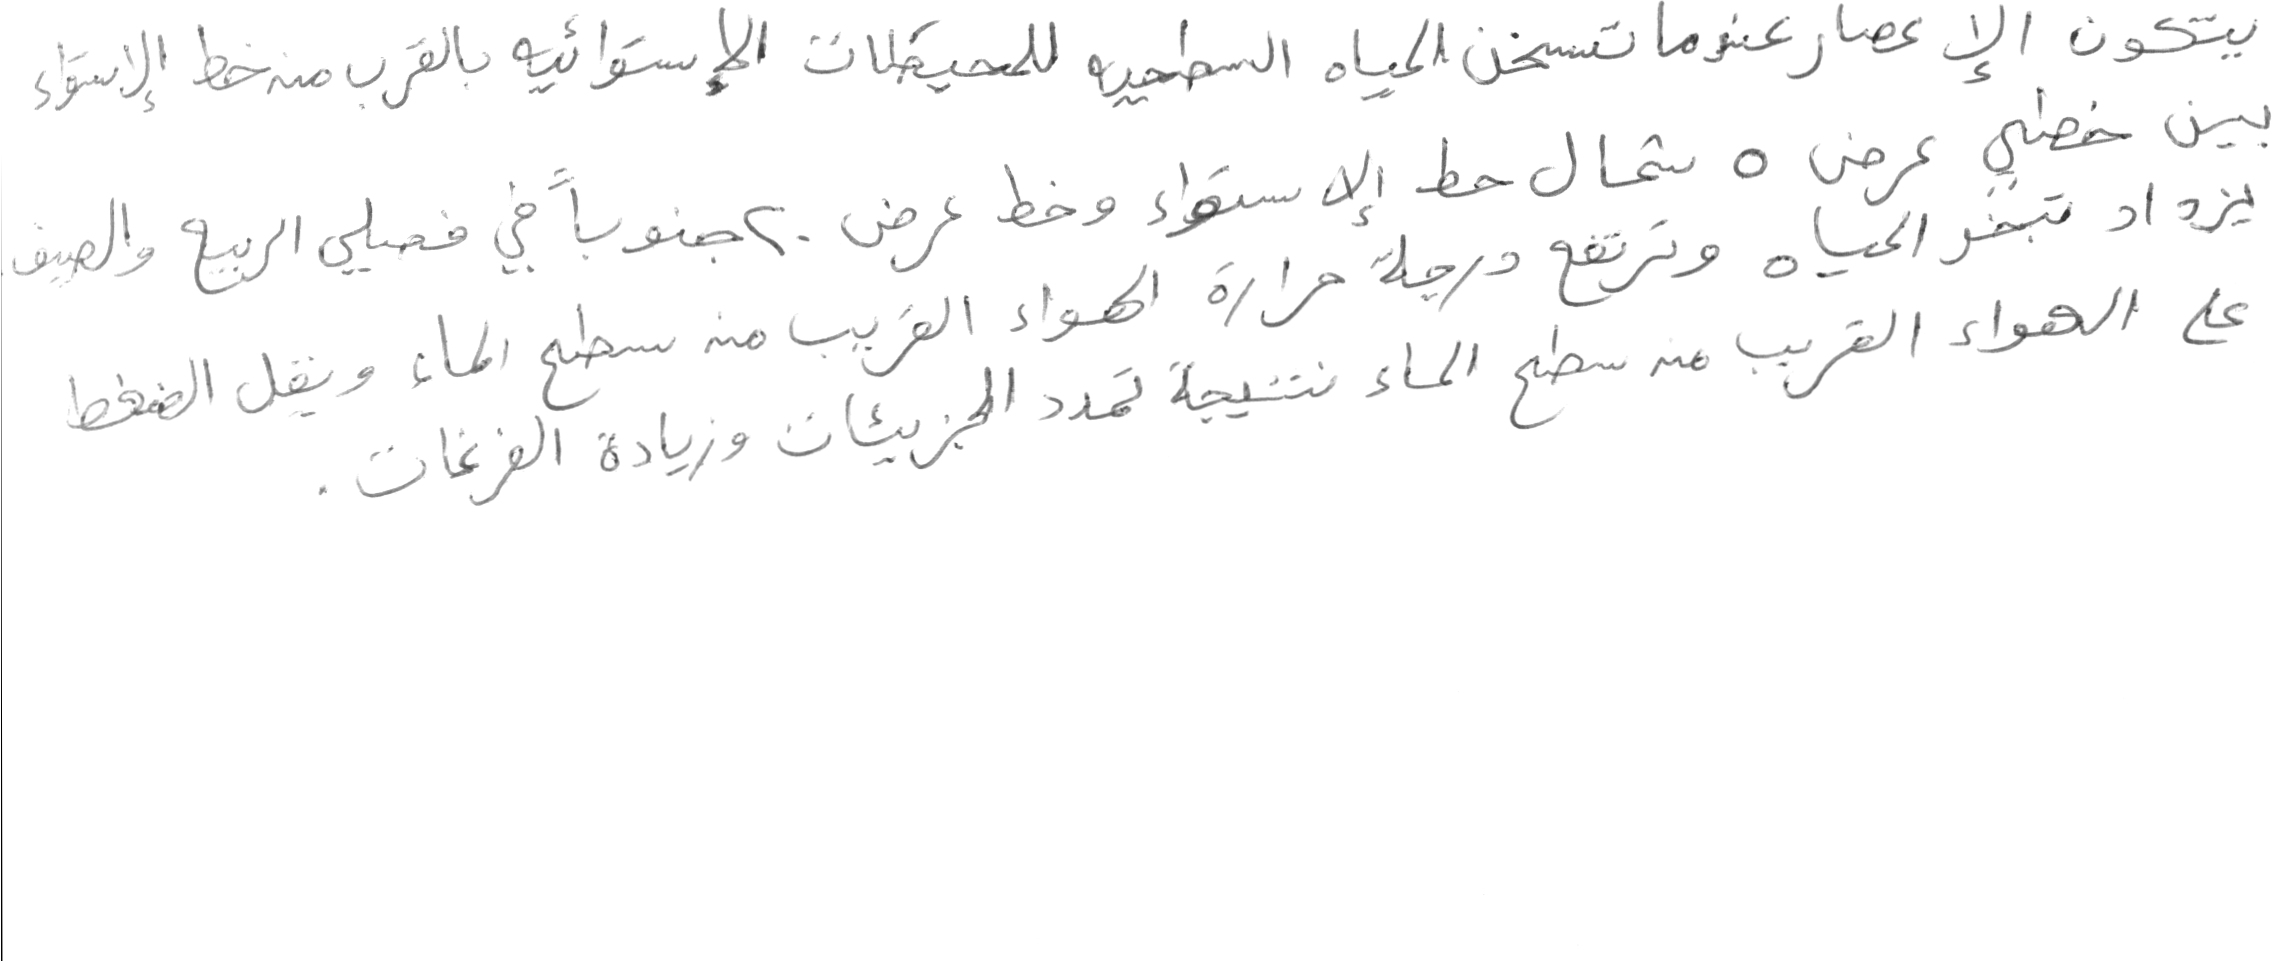 يتكون الإعصار عندما تسخن المياه السطحيه للمحيطات الإستوائيه بالقرب من خط الإستواء
بين خطي عرض ٥ شمال خط الإستواء وخط عرض ٢٠ جنوباً في فصلي الربيع والصيف.
يزداد تبخر المياه وترتفع درجة حرارة الهواء القريب من سطح الماء ويقل الضغط
على الهواء القريب من سطح الماء نتيجة تمدد الجزيئات وزيادة الفرغات.